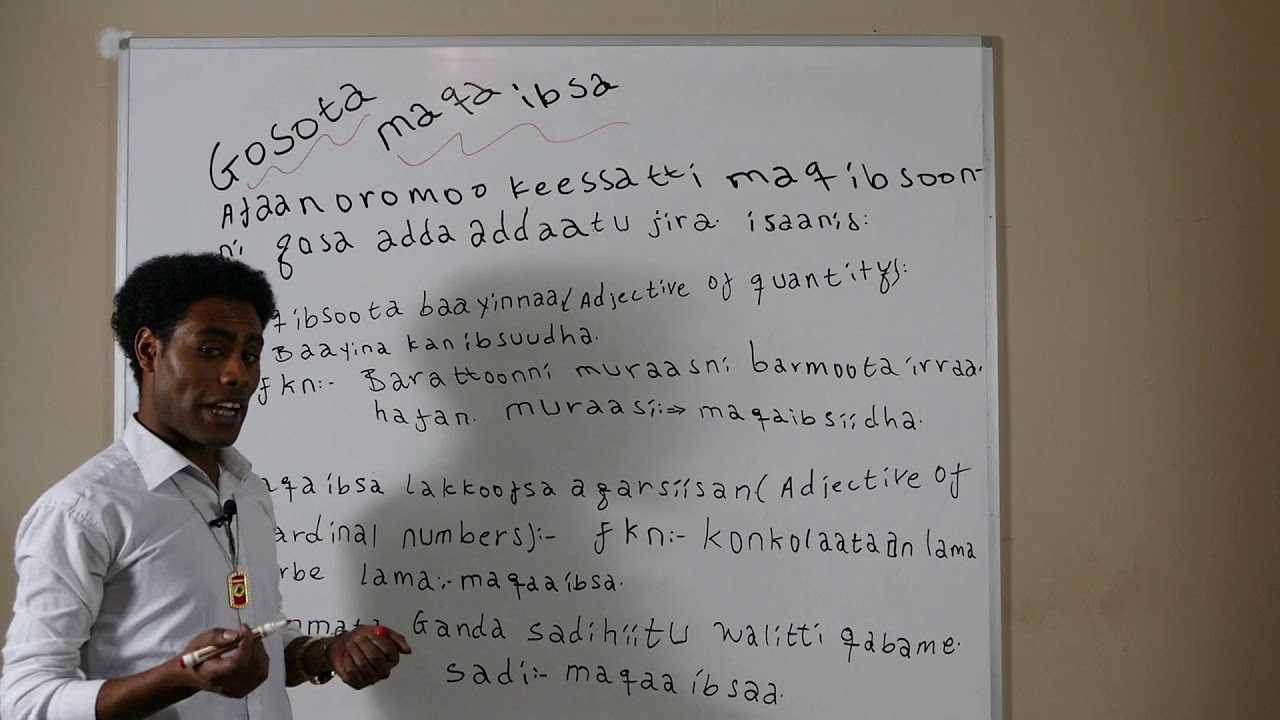 Gosota maqa ibsa
Afaan oromoo keessatti maqibsoon-
ni gosa adda addaatu jira. isaanis:
ibsoota baayinnaa(Adjective of quantity):
Baayina kan ibsuudha.
fkn:- Barattoonni muraasni barmoota irraa.
hafan. muraasi:⇒ maqaibsiidha.
qaibsa lakkoofsa agarsiisan(Adjective of
ardinal numbers):- fkn:- konkolaataan lama
rbe lama:- maqaaibsa.
Ganda sadihiitu walitti qabame.
sadi:- maqaa ibsaa.